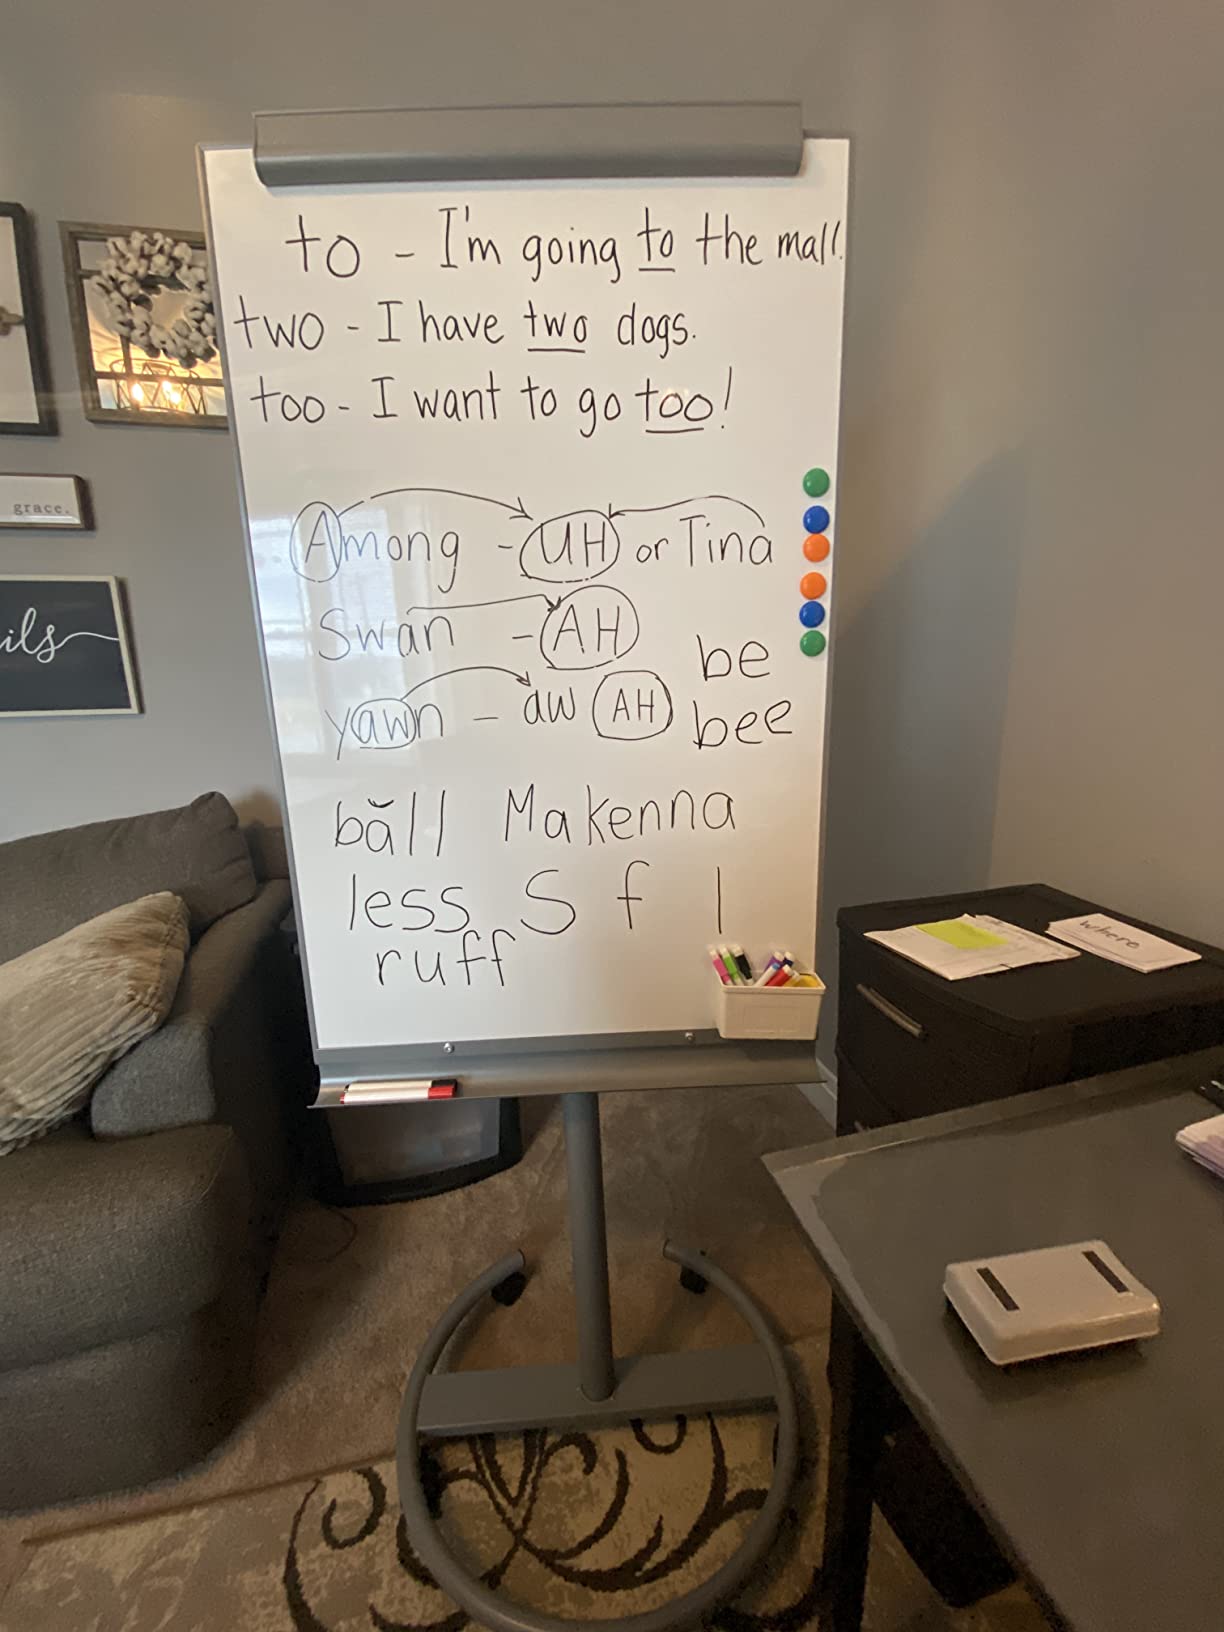 to - I'm going to the mall.
two - I have two dogs.
too - I want to go too!
Among - UH or Tina
Swan - AH
be
yawn - aw AH
bee
băll Makenna
less S f l
ruff
grace.
ils
where